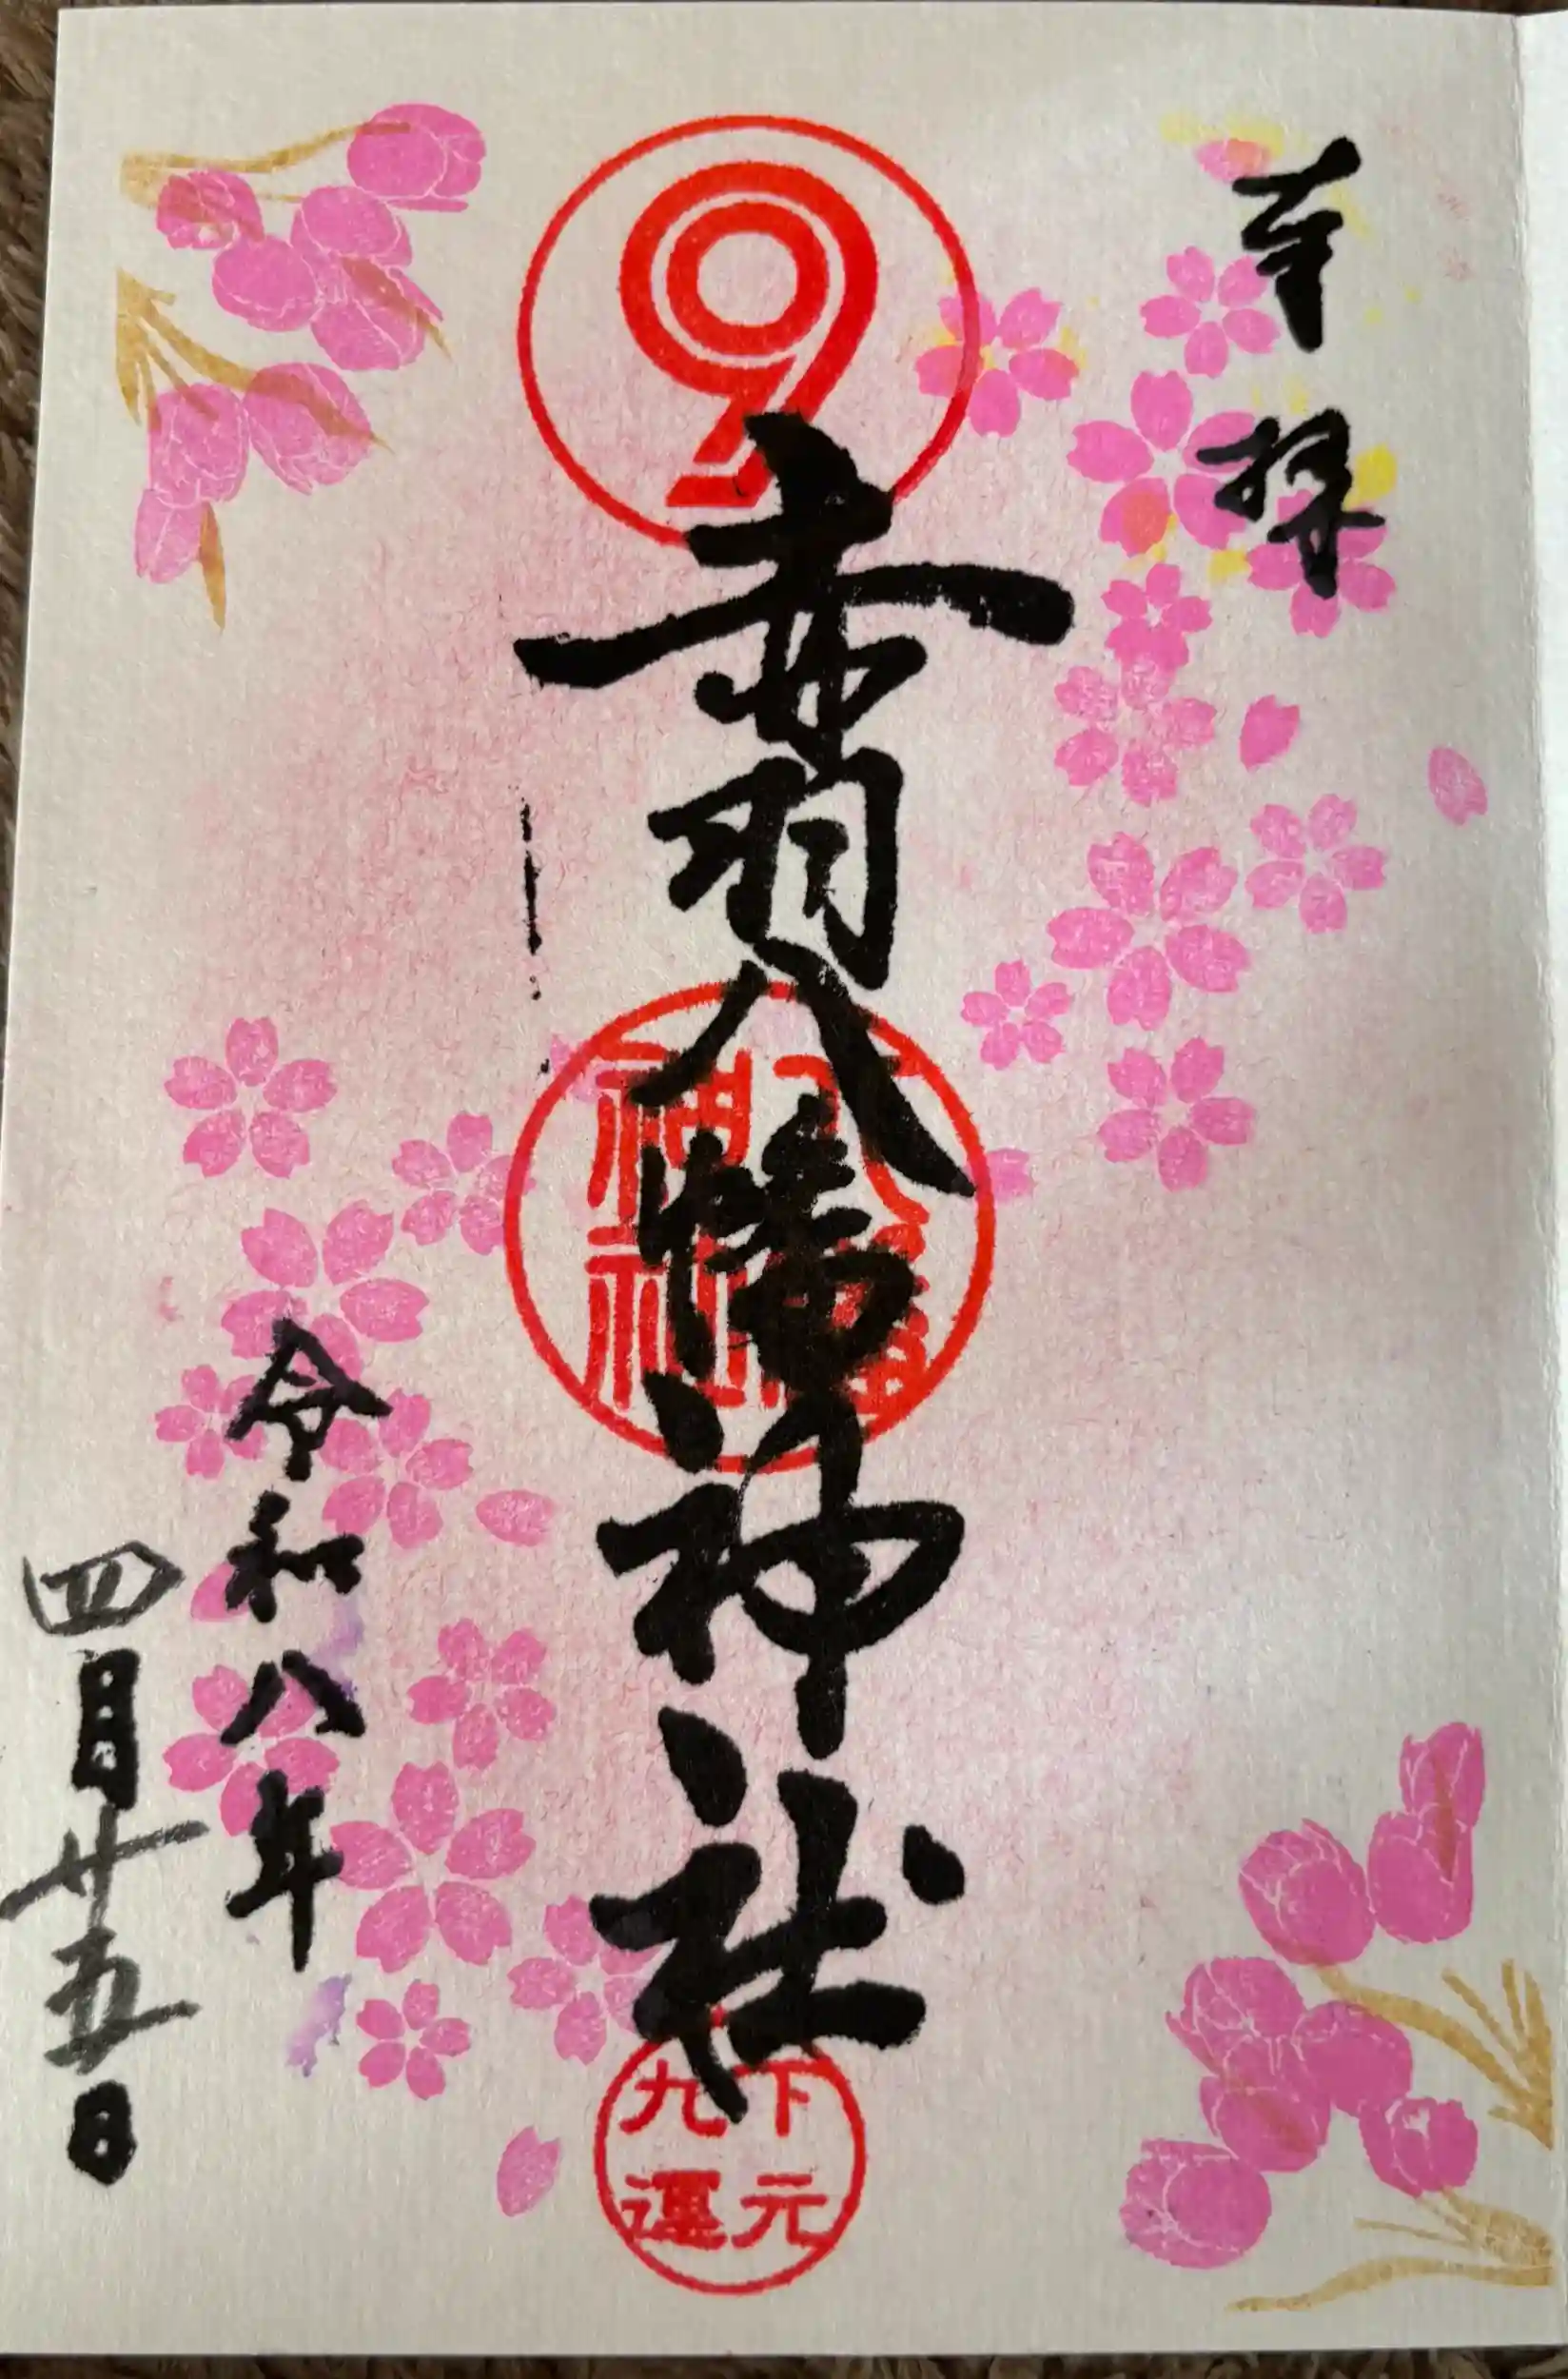 奉拝
9
赤羽八幡神社
八幡
神社
下元
九運
令和八年
四月廿五日